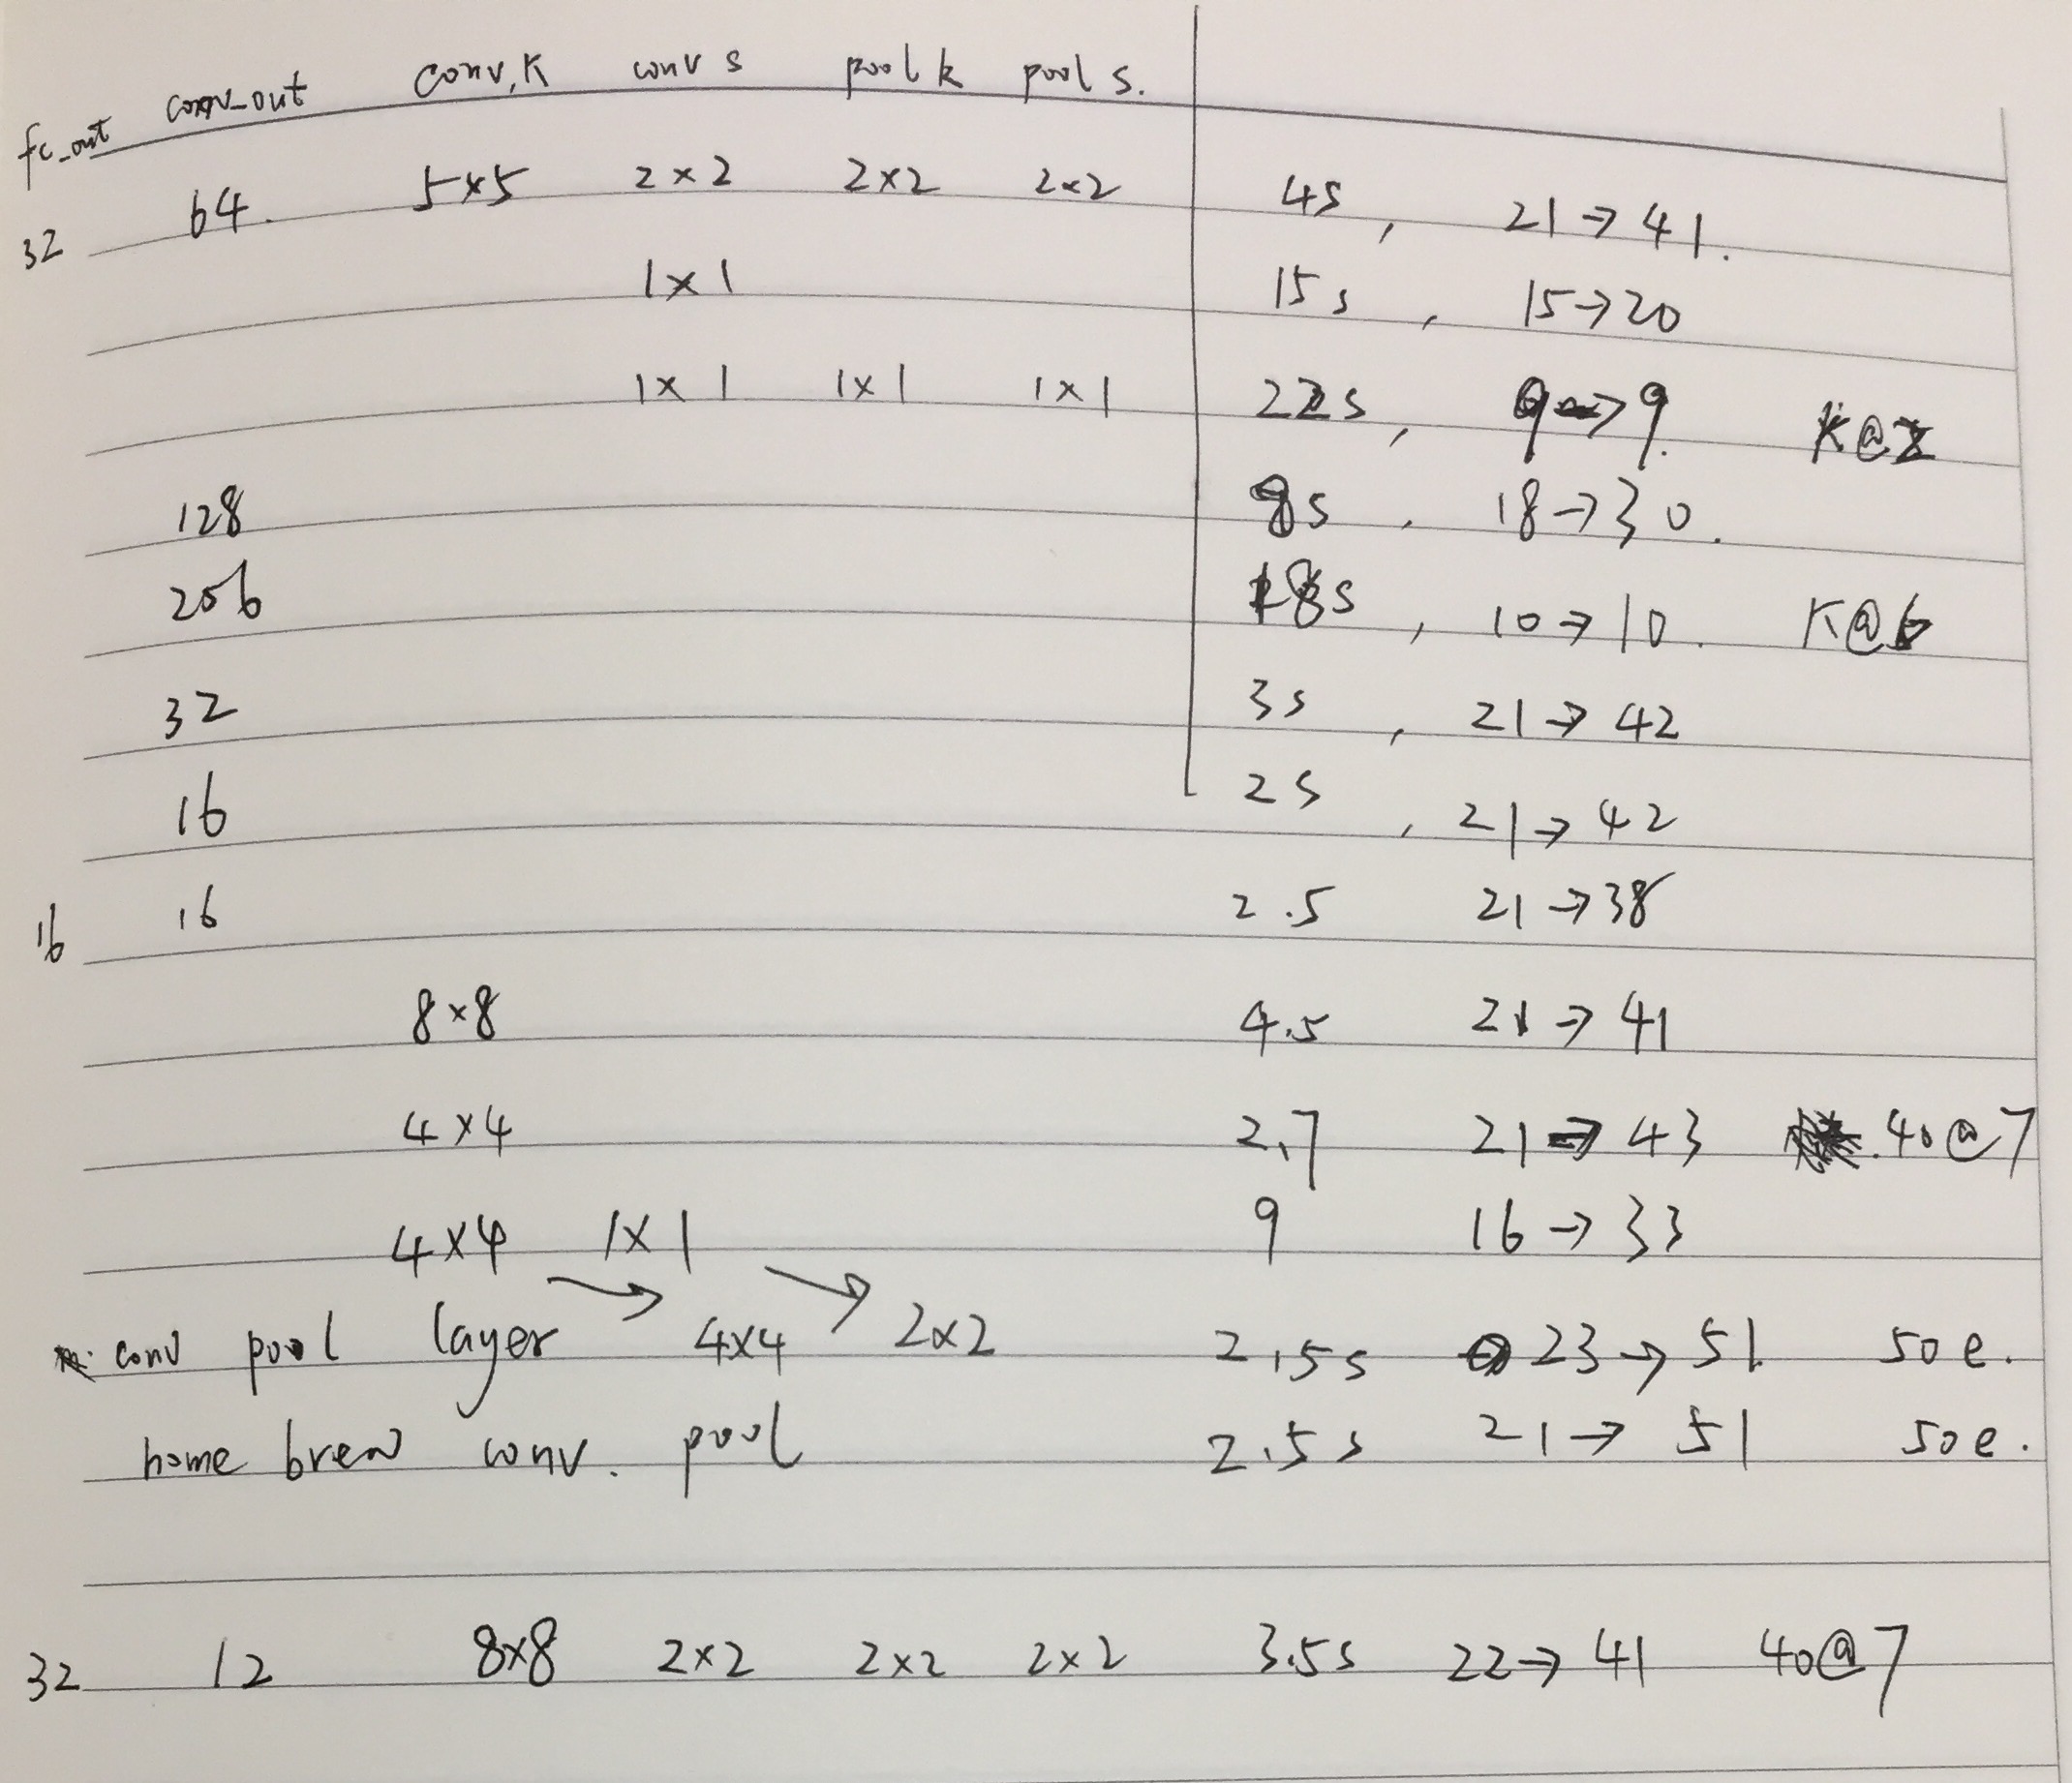 fc_out conv_out conv, K conv s pool k pool s.
32 64. 5×5 2×2 2×2 2×2 4s, 21→41.
1×1 15s, 15→20
1×1 1×1 1×1 22s, 9→9. K@2
128 8s, 18→30.
256 18s, 10→10. K@6
32 3s, 21→42
16 2s, 21→42
16 16 2.5 21→38
8×8 4.5 21→41
4×4 2.7 21→43 40@7
4×4 1×1 9 16→33
conv pool layer → 4×4 → 2×2 2.5s 23→51 50e.
home brew conv. pool 2.5s 21→51 50e.
32 12 8×8 2×2 2×2 2×2 3.5s 22→41 40@7